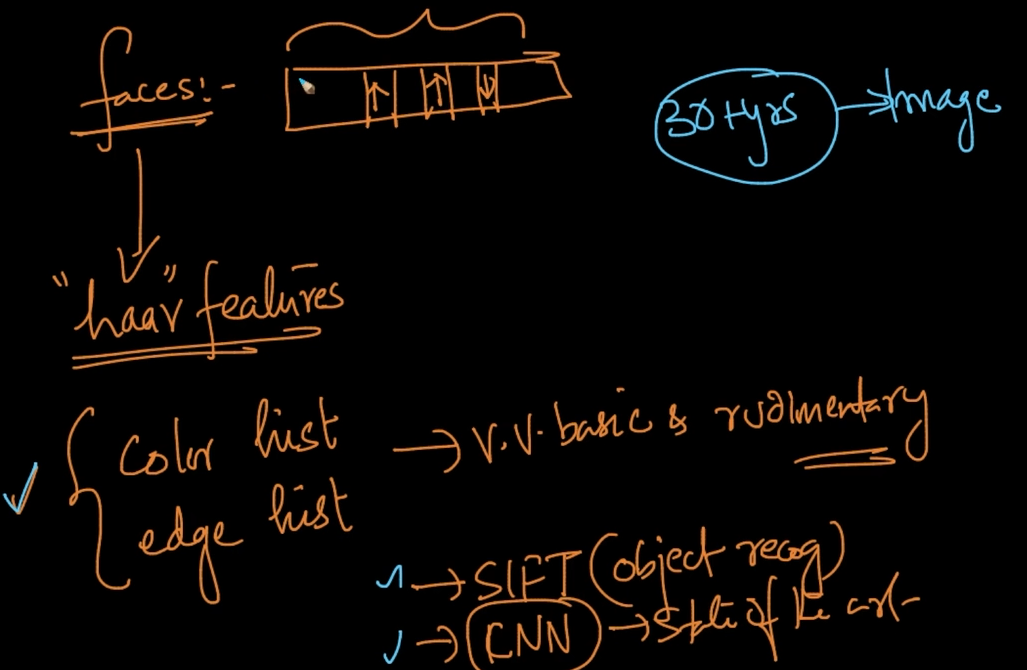 faces:-
30+yrs → Image
"haar" features
color hist → v.v. basic & rudimentary
edge hist
→ SIFT (object recog)
→ CNN → State of the art